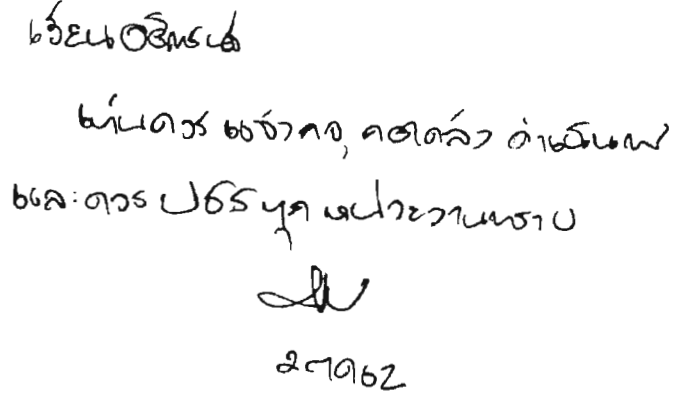 เรียนอธิการบดี
เห็นควร แจ้ง กจ, กองคลัง ดำเนินการ
และควร ทุก หน่วยงานทราบ
2 ตค 62